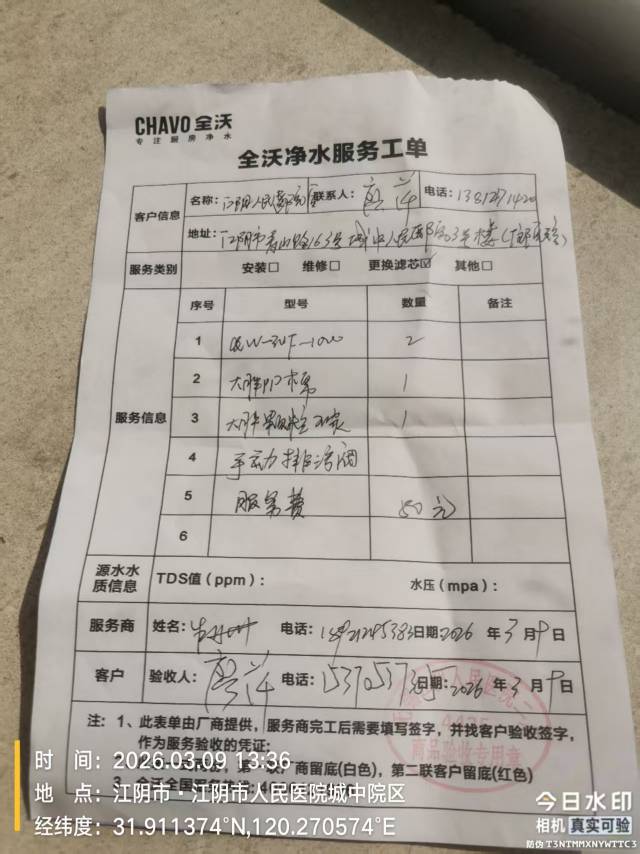 CHAVO 全沃
专注厨房净水
全沃净水服务工单
客户信息 名称: 江阴人民医院 联系人: 电话:
地址: 江阴市寿山路163号城中人民医院3号楼
服务类别 安装□ 维修□ 更换滤芯☑ 其他□
服务信息 序号 型号 数量 备注
1 QW-3UF-1000 2
2 大胖PP棉 1
3 大胖颗粒碳 1
4 手动排污阀
5 服务费 50元
6
源水水质信息 TDS值(ppm): 水压(mpa):
服务商 姓名: 电话: 日期: 2026年3月9日
客户 验收人: 电话: 日期: 2026年3月9日
注: 1、此表单由厂商提供,服务商完工后需要填写签字,并找客户验收签字,
作为服务验收的凭证;
第一联厂商留底(白色),第二联客户留底(红色)
3、全沃全国服务热线:
商品验收专用章
时 间: 2026.03.09 13:36
地 点: 江阴市·江阴市人民医院城中院区
经纬度: 31.911374°N,120.270574°E
今日水印
相机 真实可验
防伪 T3NTMMXNYWTTC3